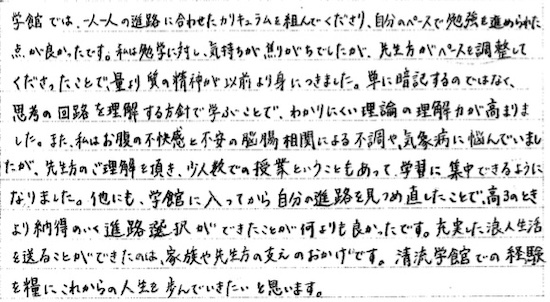 学館では、一人一人の進路に合わせたカリキュラムを組んでくださり、自分のペースで勉強を進められた
点が良かったです。私は勉学に対し、気持ちが焦りがちでしたが、先生方がペースを調整して
くださったことで、量より質の精神が以前より身につきました。単に暗記するのではなく、
思考の回路を理解する方針で学ぶことで、わかりにくい理論の理解力が高まりま
した。また、私はお腹の不快感と不安の脳腸相関による不調や、気象病に悩んでいまし
たが、先生方のご理解を頂き、少人数での授業ということもあって、学習に集中できるように
なりました。他にも、学館に入ってから自分の進路を見つめ直したことで、高3のとき
より納得のいく進路選択ができたことが何よりも良かったです。充実した浪人生活
を送ることができたのは、家族や先生方の支えのおかげです。清流学館での経験
を糧にこれからの人生を歩んでいきたいと思います。